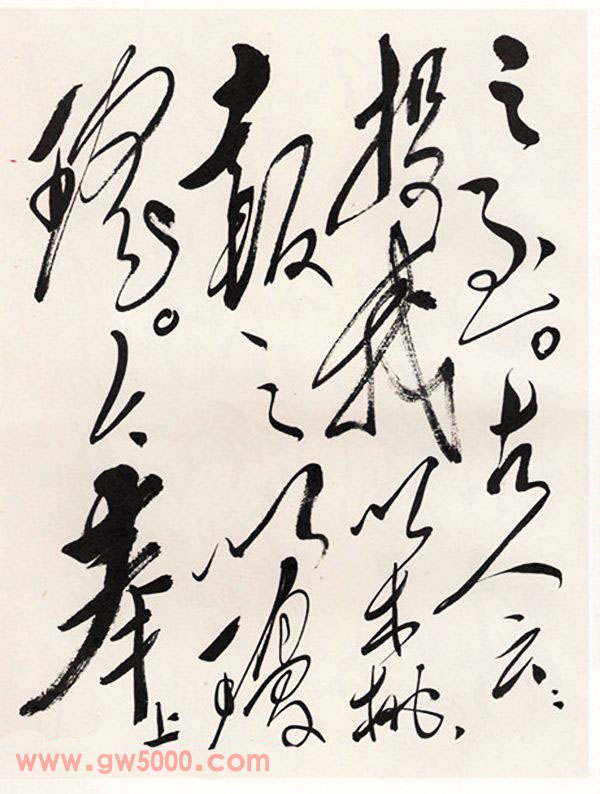 之至。古人云：
投我以木桃，
报之以琼
瑶。今奉上
www.gw5000.com